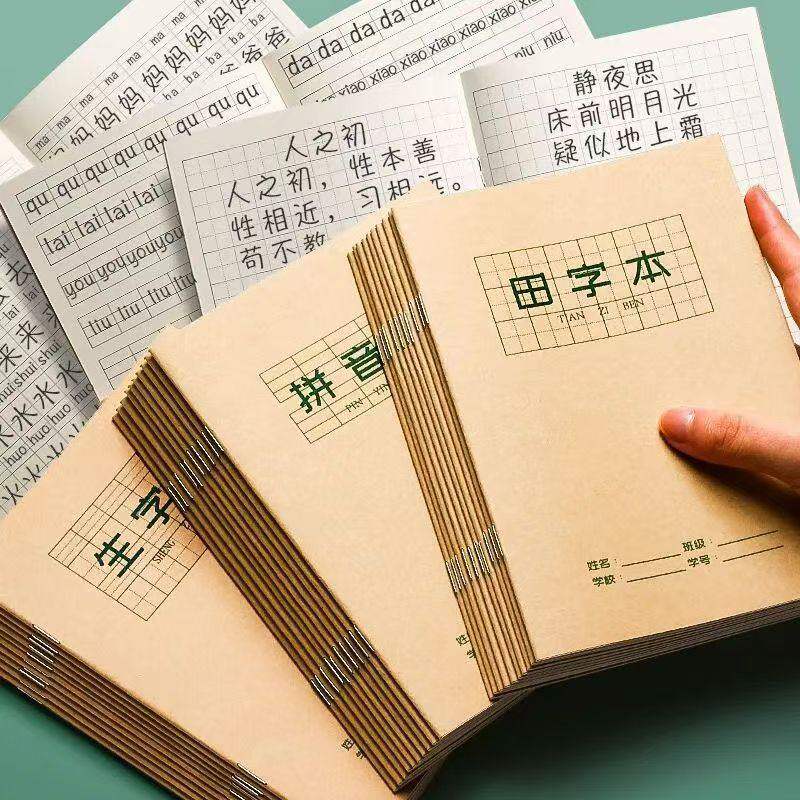 ma ma ma ma
妈 妈 妈 妈 妈
ba ba ba ba
爸 爸 爸
da da da da da
xiao xiao xiao xiao xiao
niu niu
qu qu qu qu qu qu qu
tai tai tai tai
you you you you
liu liu liu liu
人之初
人之初，性本善
性相近，习相远。
苟不教
静夜思
床前明月光
疑似地上霜
去
lai lai
来 来 来
shui shui shui
水 水 水 水
huo huo huo huo
火 火
田字本
TIAN ZI BEN
姓名：
班级：
学校：
学号：
拼音
PIN YIN
生字
SHENG